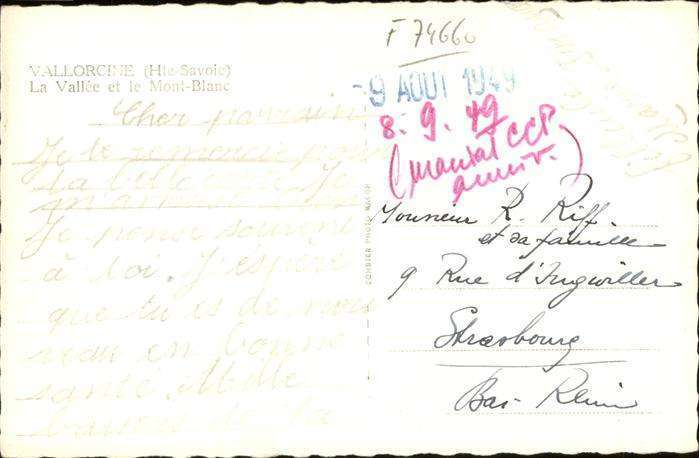 F 74660
VALLORCINE (Hte-Savoie)
La Vallée et le Mont-Blanc
-9 AOUT 1949
8. 9. 49
(mandat CCP.
anniv.)
Cher parrain
Je te remercie pour
ta belle
Je pense souvent
à toi. J'espère
que tu es de nou
veau en bonne
santé. Mille
baisers de ta
COMBIER PHOTO MACON
Monsieur R. Riff
et sa famille
9 Rue d'Ingwiller
Strasbourg
Bas-Rhin